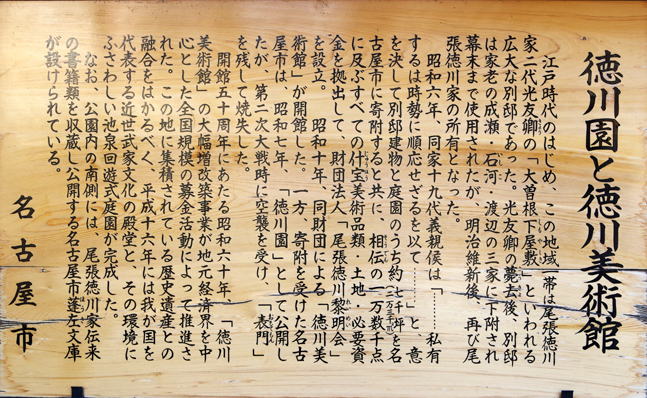 徳川園と徳川美術館
江戸時代のはじめ、この地域一帯は尾張徳川
家二代光友卿の「大曽根下屋敷」といわれる
広大な別邸であった。光友卿の薨去後、別邸
は家老の成瀬・石河・渡辺の三家に下附され
幕末まで使用されたが、明治維新後、再び尾
張徳川家の所有となった。
昭和六年、同家十九代義親侯は「……私有
するは時勢に順応せざるを以て……」と、意
を決して別邸建物と庭園のうち約七千坪を名
古屋市に寄附すると共に、相伝の一万数千点
に及ぶすべての什宝美術品類・土地・必要資
金を拠出して、財団法人「尾張徳川黎明会」
を設立。昭和十年、同財団による「徳川美
術館」が開館した。一方、寄附を受けた名古
屋市は、昭和七年、「徳川園」として公開し
たが、第二次大戦時に空襲を受け、「表門」
を残して焼失した。
開館五十周年にあたる昭和六十年、「徳川
美術館」の大幅増改築事業が地元経済界を中
心とした全国規模の募金活動によって推進さ
れた。この地に集積されている歴史遺産との
融合をはかるべく、平成十六年には我が国を
代表する近世武家文化の殿堂と、その環境に
ふさわしい池泉回遊式庭園が完成した。
なお、公園内の南側には、尾張徳川家伝来
の書籍類を収蔵し公開する名古屋市蓬左文庫
が設けられている。
名古屋市